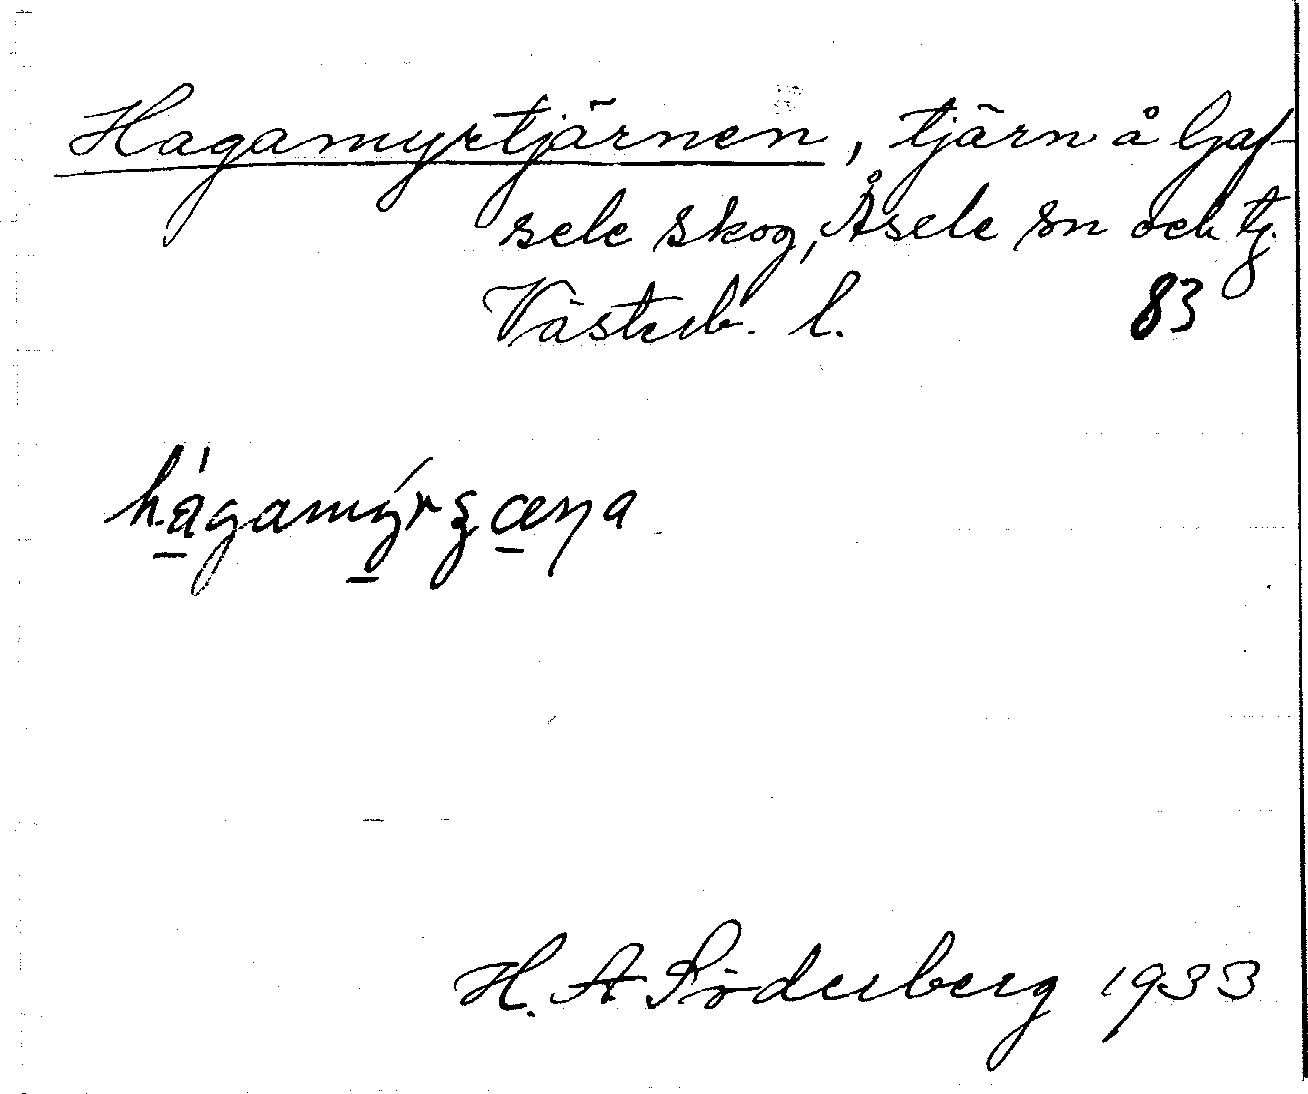 Hagamyrtjärnen, tjärn å Gaf-
sele skog, Åsele sn och tg.
Västerb. l. 83
H. A Söderberg 1933